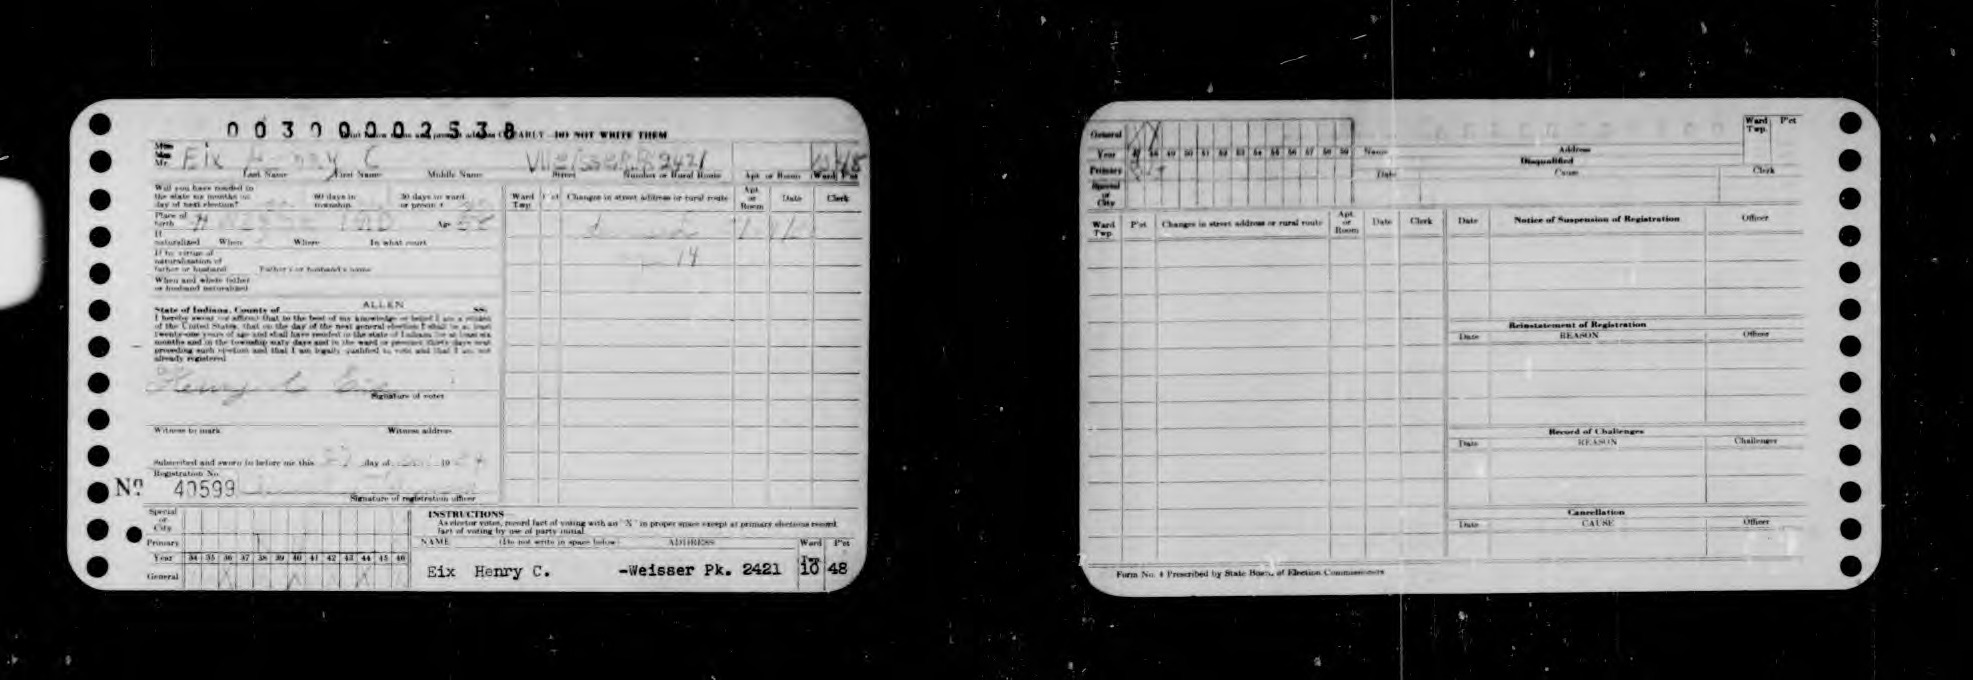 0 0 3 0 0 0 0 2 5 3 8
EARLY DO NOT WRITE THEM
Miss
Mrs.
Mr. Eix Henry C Weisser Pk 2421 10 48
Last Name First Name Middle Name Street Number or Rural Route Apt. or Room Ward P'ct
Will you have resided in
the state six months on 60 days in 30 days in ward
day of next election? township or precinct
Place of
birth IND Age
If
naturalized When Where In what court
If by virtue of
naturalization of
father or husband Father's or husband's name
When and where father
or husband naturalized
ALLEN
State of Indiana, County of SS:
I hereby swear (or affirm) that to the best of my knowledge or belief I am a citizen
of the United States, that on the day of the next general election I shall be at least
twenty-one years of age and shall have resided in the state of Indiana for at least six
months and in the township sixty days and in the ward or precinct thirty days next
preceding such election and that I am legally qualified to vote and that I am not
already registered
Henry C Eix
Signature of voter
Witness to mark Witness address
Subscribed and sworn to before me this 27 day of 19
Registration No.
No. 40599
Signature of registration officer
Ward Twp. P'ct Changes in street address or rural route Apt. or Room Date Clerk
14
Special
or
City
Primary
Year 34 35 36 37 38 39 40 41 42 43 44 45 46
General X X X
INSTRUCTIONS
As elector votes, record fact of voting with an "X" in proper space except at primary elections record
fact of voting by use of party initial
NAME (Do not write in space below) ADDRESS Ward Twp. P'ct
Eix Henry C. -Weisser Pk. 2421 10 48
General
Year 47 48 49 50 51 52 53 54 55 56 57 58 59
Primary
Special
or
City
Name Address
Ward Twp. P'ct
Disqualified
Date Cause Clerk
Ward Twp. P'ct Changes in street address or rural route Apt. or Room Date Clerk
Date Notice of Suspension of Registration Officer
Reinstatement of Registration
Date REASON Officer
Record of Challenges
Date REASON Challenger
Cancellation
Date CAUSE Officer
Form No. 4 Prescribed by State Board of Election Commissioners